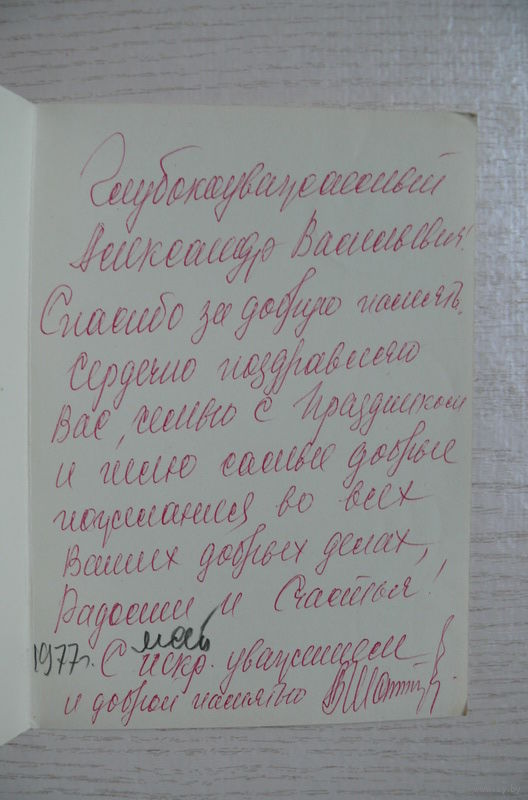 Глубокоуважаемый
Александр Васильевич!
Спасибо за добрую память.
Сердечно поздравляю
Вас, семью с Праздником
и шлю самые добрые
пожелания во всех
Ваших добрых делах,
Радости и Счастья!
май
1977г. С искр. уважением
и доброй памятью